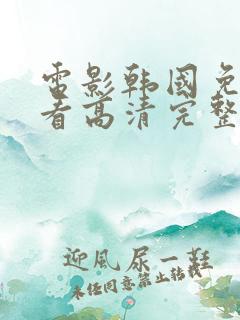 雷影韩国免
看高清完整
迎風尿一鞋
未经同意禁止转载